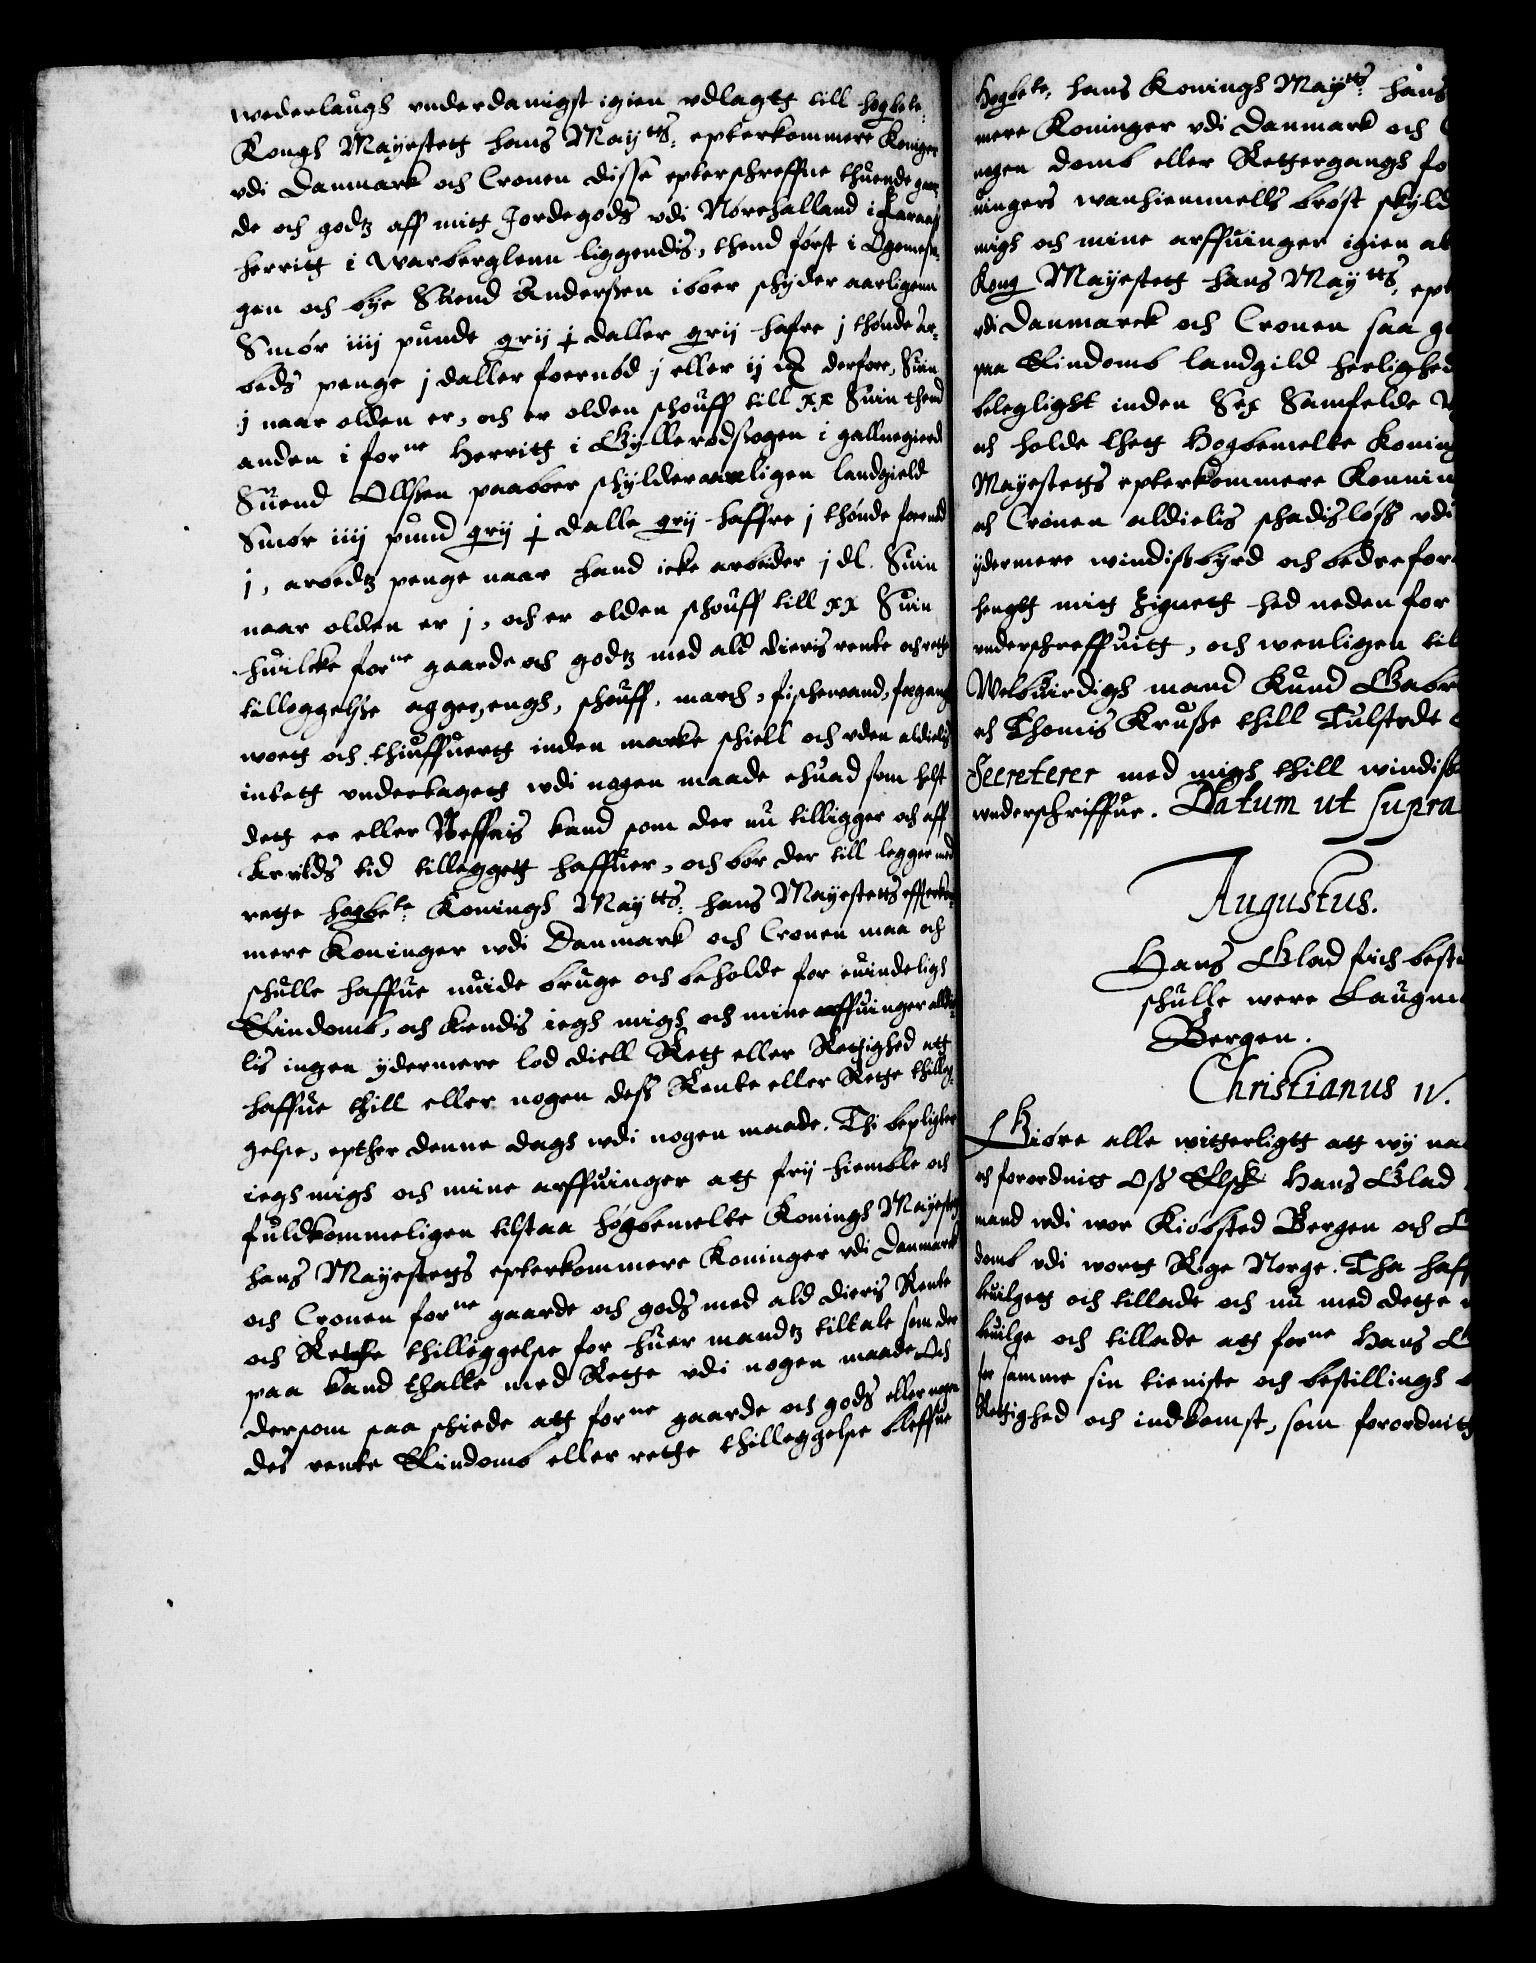 wederlaugs vnderdanigst igien vdlagtt till högbete:
Kongs Mayestett hans Maytts: epterkommere Koniger
vdi Danmark och Cronen disse epterschreffne thuende gaar
de och godtz aff mitt Jordegods vdi Nørehalland i
herritt i Warberglenn liggendis, thend først i
gen och bye Suend Anderssen iboer schyder aarligenn
Smør iiij punde grij ɉ daller grij hafre j thønde ar-
beds penge j daller foernød j eller ij derfore, Suin
j naar olden er, och er olden schouff till xx Suin thend
anden i forne Herritt i Gyllerødssogen i gallnegierd
Suend Ollssen paaboer schylder aarligen landgield
Smør iiij pund grij ɉ dalle grij haffre j thønde foernød
j, arbedtz penge naar hand icke arbeider j dl. Suin
naar olden er j, och er olden schouff till xx Suin
huilcke forne gaarde och godtz med ald dieris rente och rette
tilleggelse agger, engh, schouff, march, fischeuand, fægang
woett och thiuffuertt inden marke schiell och vden aldielis
intett vndertagett wdi nogen maade ehuad som helst
dett er eller Neffnis kand som der nu tilligger och aff
Arilds tid tilleggett haffuer, och bør der till legge med
rette høgbete: Konings Maytts: hans Mayestetts effterkom
mere Koninger wdi Danmark och Cronen maa och
schulle haffue nyde bruge och beholde for euindeligh
Eindomb, och kiendis iegh migh och mine arffuinger aldie-
lis ingen ydermere lod diell Rett eller Rettighed att
haffue thill eller nogen dess Rente eller Rette thilleg-
gelse, epther denne dagh wdi nogen maade. Thi bepligter
iegh migh och mine arffuinger att frij hiemble och
fuldkommeligen tilstaa høgbemelte Konings Mayestett
hans Mayestetts epterkommere Koninger vdi Danmark
och Cronen forne gaarde och gods med ald dieris Rente
och Rette thilleggelse for huer mandtz tiltale som der
paa kand thalle med Rette vdi nogen maade Och
dersom saa schiede att forne gaarde och gods eller nogen
des rente Eindomb eller rette thilleggelse bleffue
Høgbete: hans Konings Maytts: hans
mere Koninger vdi Danmark och
nogen domb eller Rettergangh fo
uingers wanhiemmells brøst skyld
migh och mine arffuinger igien at
Kong Mayestett hans Maytts, ept
vdi Danmarck och Cronen saa g
paa Eindomb landgild herlighed
beleglight inden Sex Samfelde
och holde thett Høgbemelte Koning
Mayestetts epterkommere Konnin
och Cronen aldielis schadisløss vdi
ydermere windissbyrd och bedre for
hengtt mitt Zignett hed neden for
vnderschreffuitt, och wenligen til
Welbuirdigh mand Knud Gabr
och Thomis Krusse thill Tulstede
Secreterer med migh thill windiss
wnderschriffue. Datum ut supra
Augustus.
Hans Glad fich besti
schulle were Laugm
Bergen.
Christianus IV.
Giøre alle witterligtt att wy na
och forordnitt Oss Elsk Hans Glad
mand wdi wor Kiøbsted Bergen och
domb vdi wortt Rige Norge. Tha haff
builgett och tillade och nu med dette
builge och tillade att forne Hans G
for samme sin tieniste och bestillingh
Rettighed och indkomst, som forordnitt